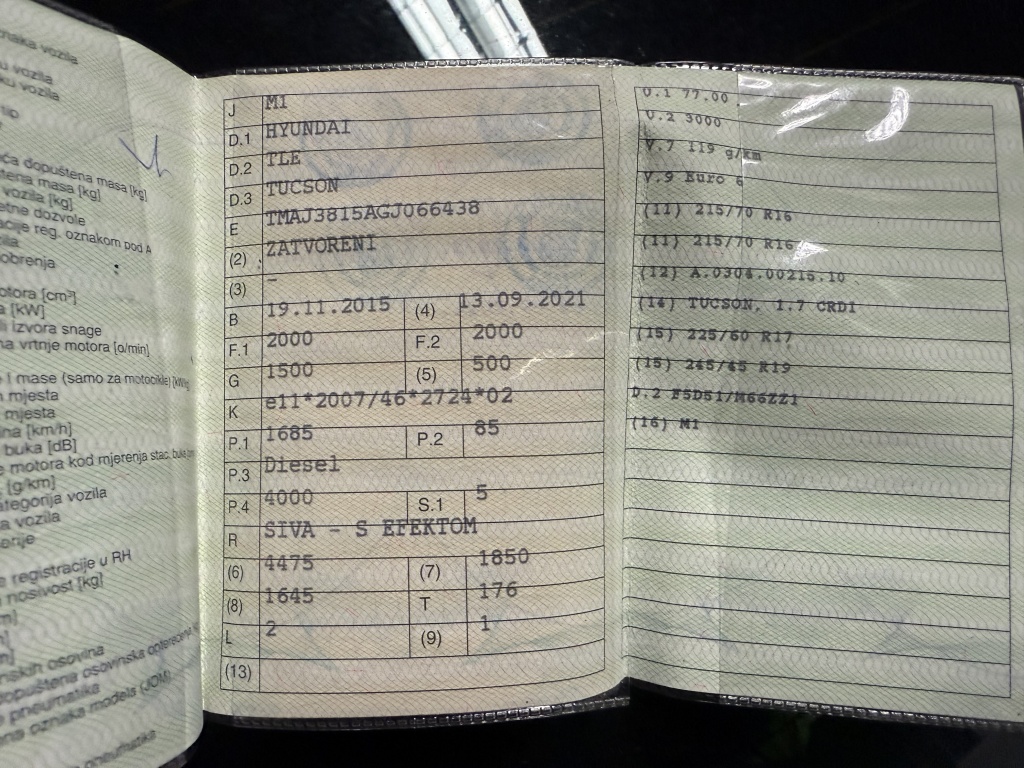 naka vozila
u vozila
ku vozila
tip
ća dopuštena masa [kg]
tena masa [kg]
vozila [kg]
etne dozvole
acije reg. oznakom pod A
ila
obrenja
otora [cm³]
a [kW]
li izvora snage
na vrtnje motora [o/min]
e i mase (samo za motocikle) [kW/kg]
h mjesta
mjesta
ina [km/h]
buka [dB]
e motora kod mjerenja stac. buke
[g/km]
ategorija vozila
a vozila
erije
e registracije u RH
nosivost [kg]
m]
]
m]
nskih osovina
dopuštena osovinska opterećenja
pneumatika
na oznaka modela (JOM)
pneumatika
J M1
D.1 HYUNDAI
D.2 TLE
D.3 TUCSON
E TMAJ3815AGJ066438
(2) ZATVORENI
(3) –
B 19.11.2015 (4) 13.09.2021
F.1 2000 F.2 2000
G 1500 (5) 500
K e11*2007/46*2724*02
P.1 1685 P.2 85
P.3 Diesel
P.4 4000 S.1 5
R SIVA - S EFEKTOM
(6) 4475 (7) 1850
(8) 1645 T 176
L 2 (9) 1
(13)
U.1 77.00
U.2 3000
V.7 119 g/km
V.9 Euro 6
(11) 215/70 R16
(11) 215/70 R16
(12) A.0304.00215.10
(14) TUCSON, 1.7 CRDI
(15) 225/60 R17
(15) 245/45 R19
D.2 F5D51/M66ZZ1
(16) M1